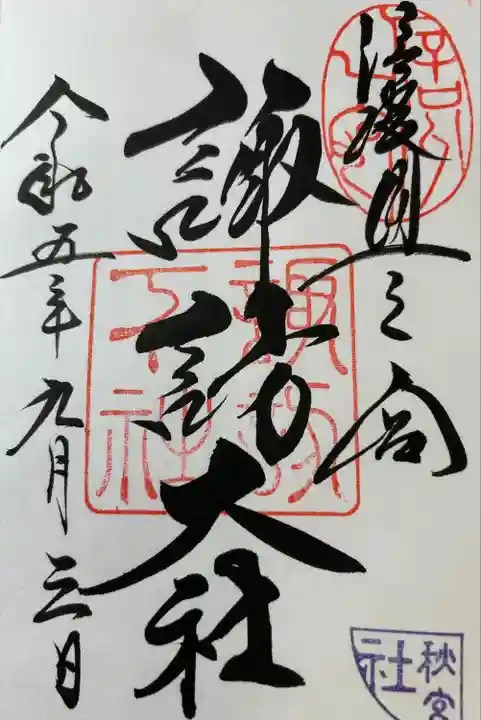 信濃國一之宮
諏訪大社
令和五年九月三日
諏訪
下社
秋宮
社